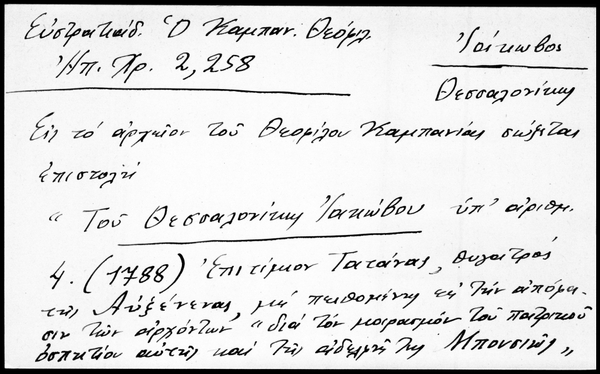 Εὐστρατιάδ. Ὁ Καμπαν. Θεόφιλ.
Ἠπ. Χρ. 2, 258
Ἰάκωβος
Θεσσαλονίκης
Εἰς τὸ ἀρχεῖον τοῦ Θεοφίλου Καμπανίας σώζεται
ἐπιστολὴ
“ Τοῦ Θεσσαλονίκης Ἰακώβου ὑπ' ἀριθμ.
4. (1788) Ἐπιτίμιον Τατάνας, θυγατρὸς
τῆς Αὐξένενας, μὴ πειθομένης εἰς τὴν ἀπόφα-
σιν τῶν ἀρχόντων “ διὰ τὸν μοιρασμὸν τοῦ πατρικοῦ
ὁσπητίου αὐτῆς καὶ τῆς ἀδελφῆς της Μπουσιῶς „